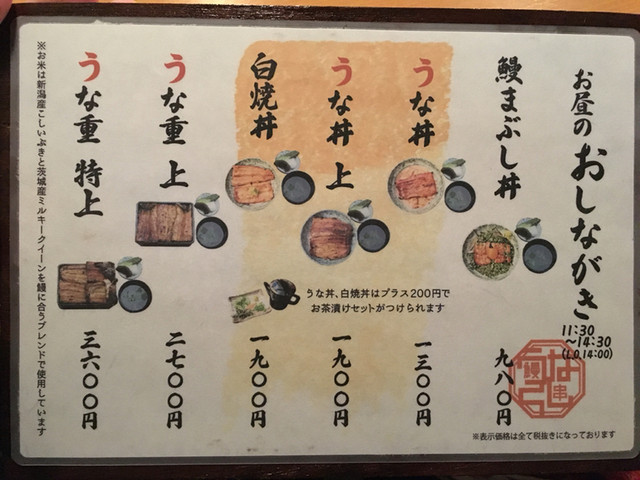 お昼のおしながき
11:30
～14:30
(L.O.14:00)
鰻まぶし丼
九八〇円
うな丼
一三〇〇円
うな丼 上
一九〇〇円
白焼丼
一九〇〇円
うな丼、白焼丼はプラス200円で
お茶漬けセットがつけられます
うな重 上
二七〇〇円
うな重 特上
三六〇〇円
※お米は新潟産こしいぶきと茨城産ミルキークイーンを鰻に合うブレンドで使用しています
※表示価格は全て税抜きになっております